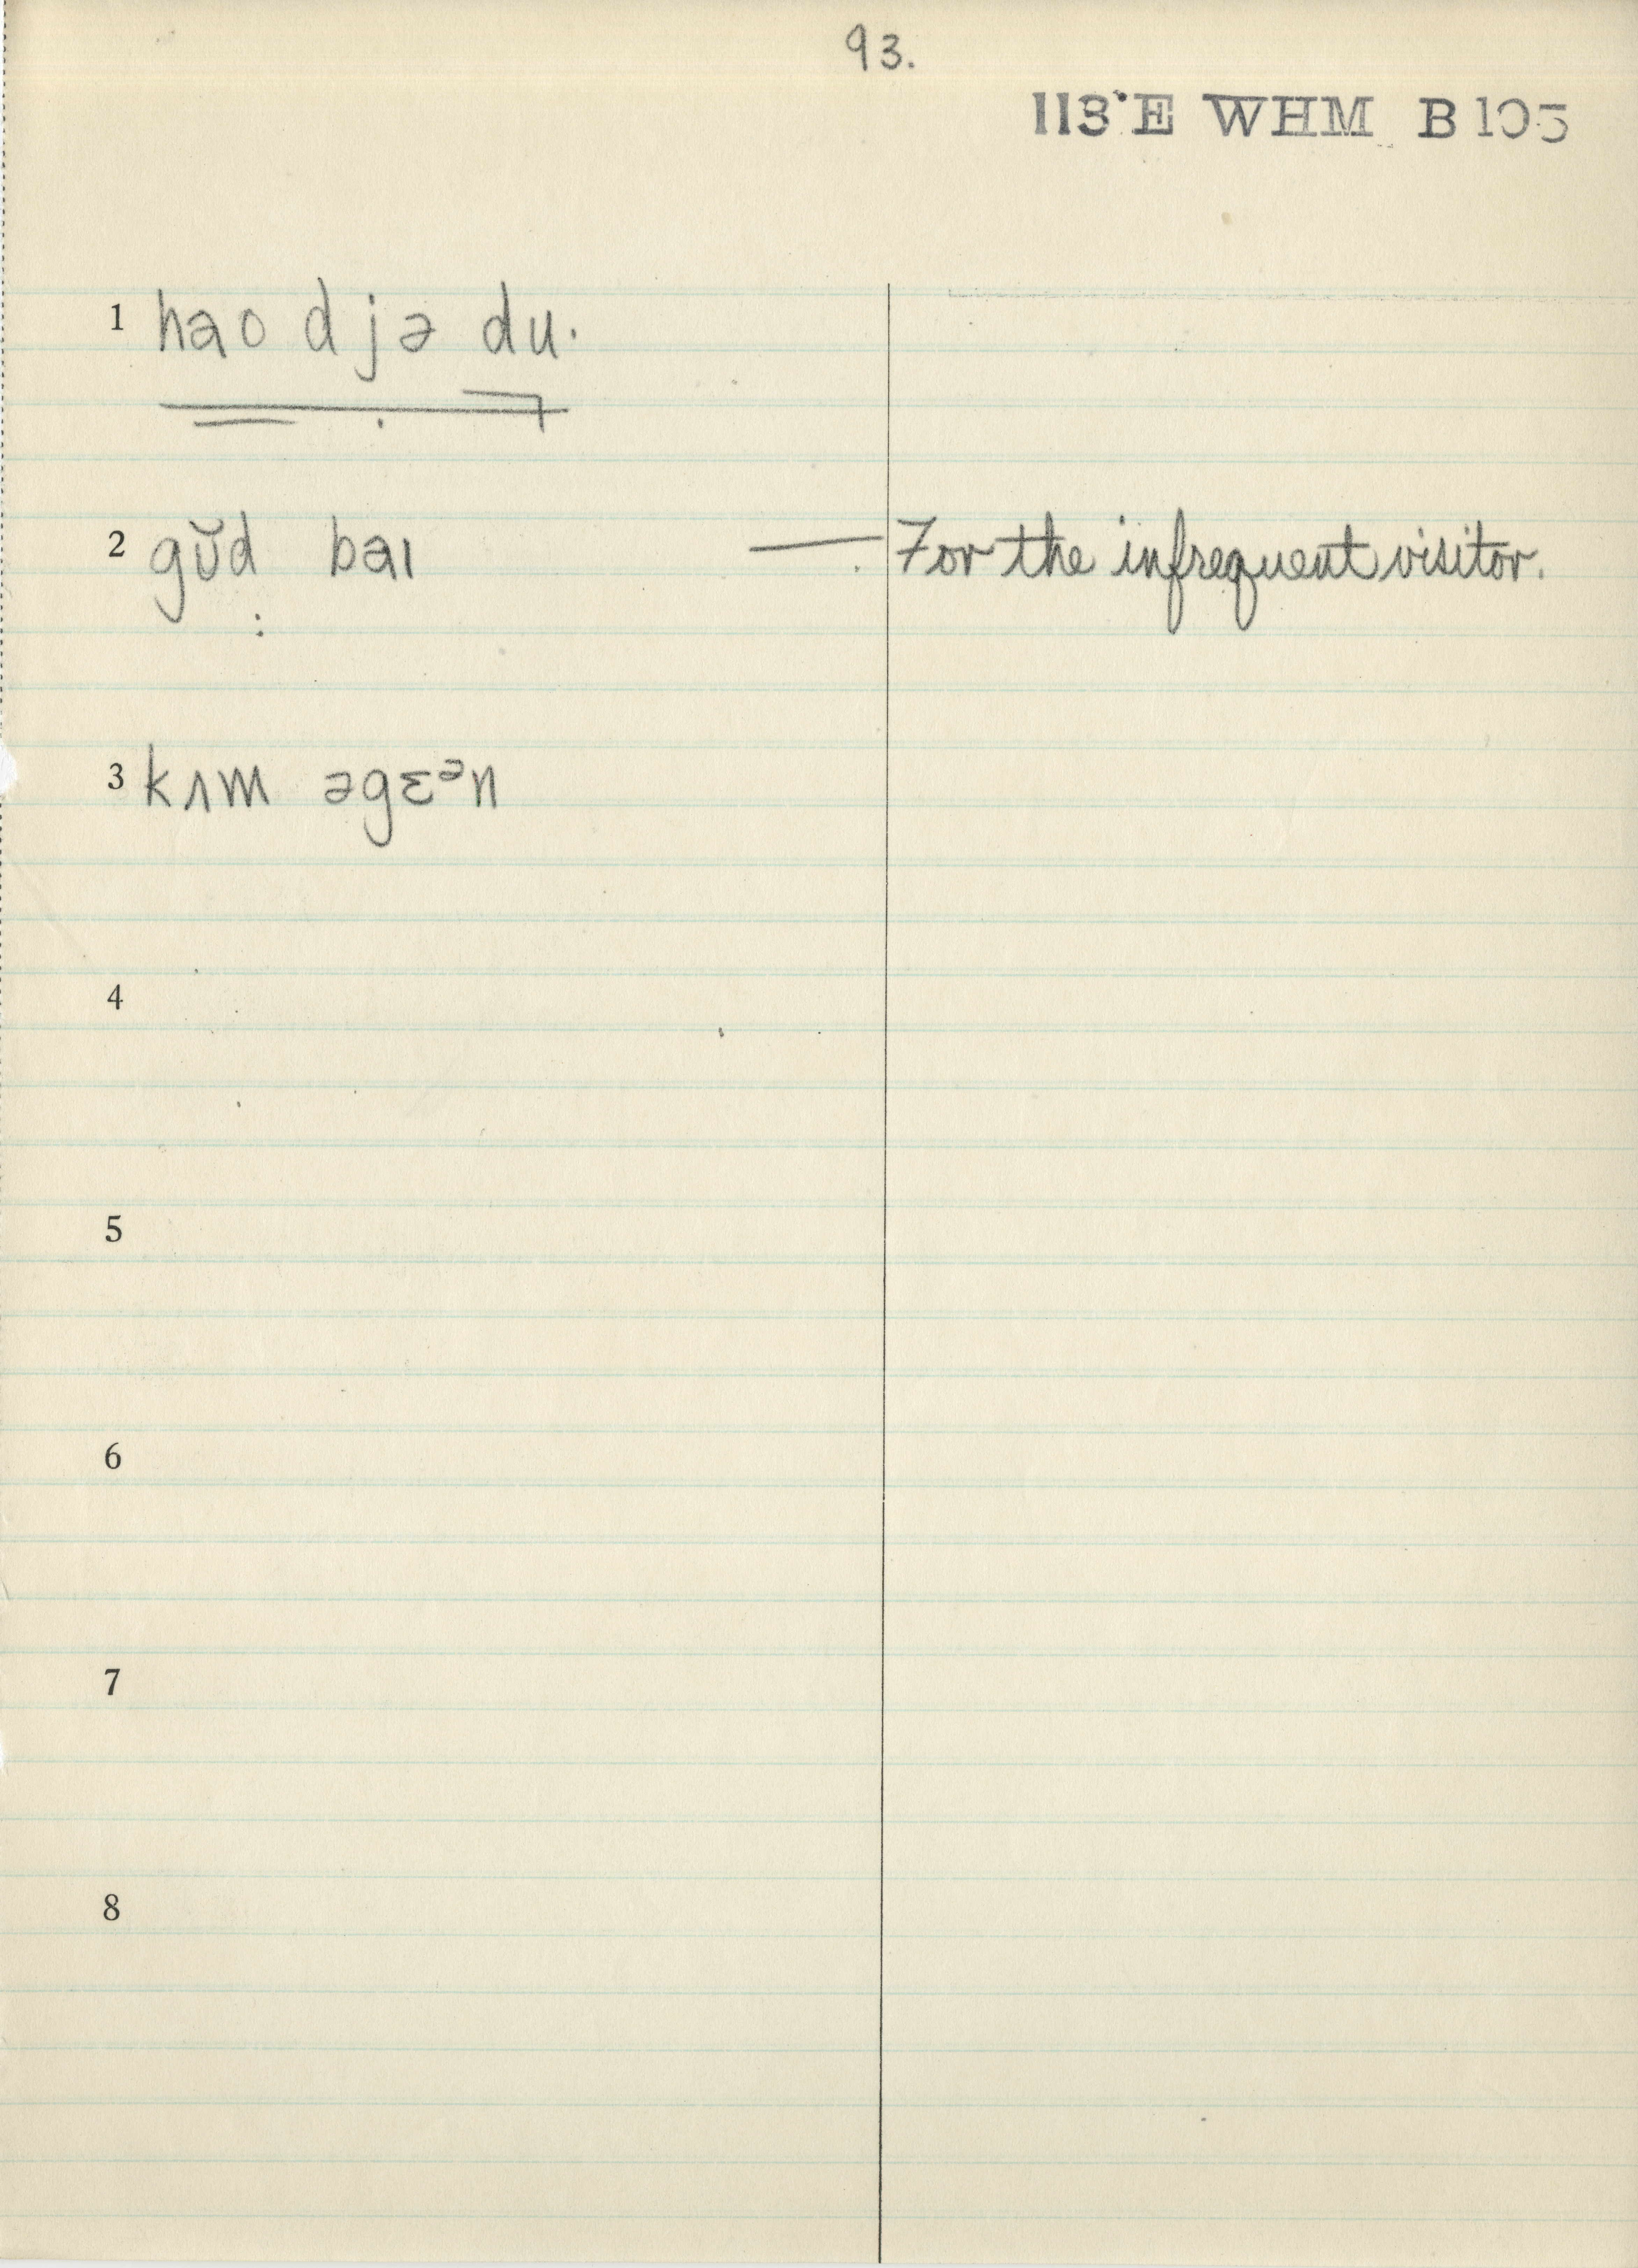 93.
113°E WHM B105
1 hao djə du·
2 gŭd baɪ — For the infrequent visitor.
3 kʌm əgɛᵊn
4
5
6
7
8